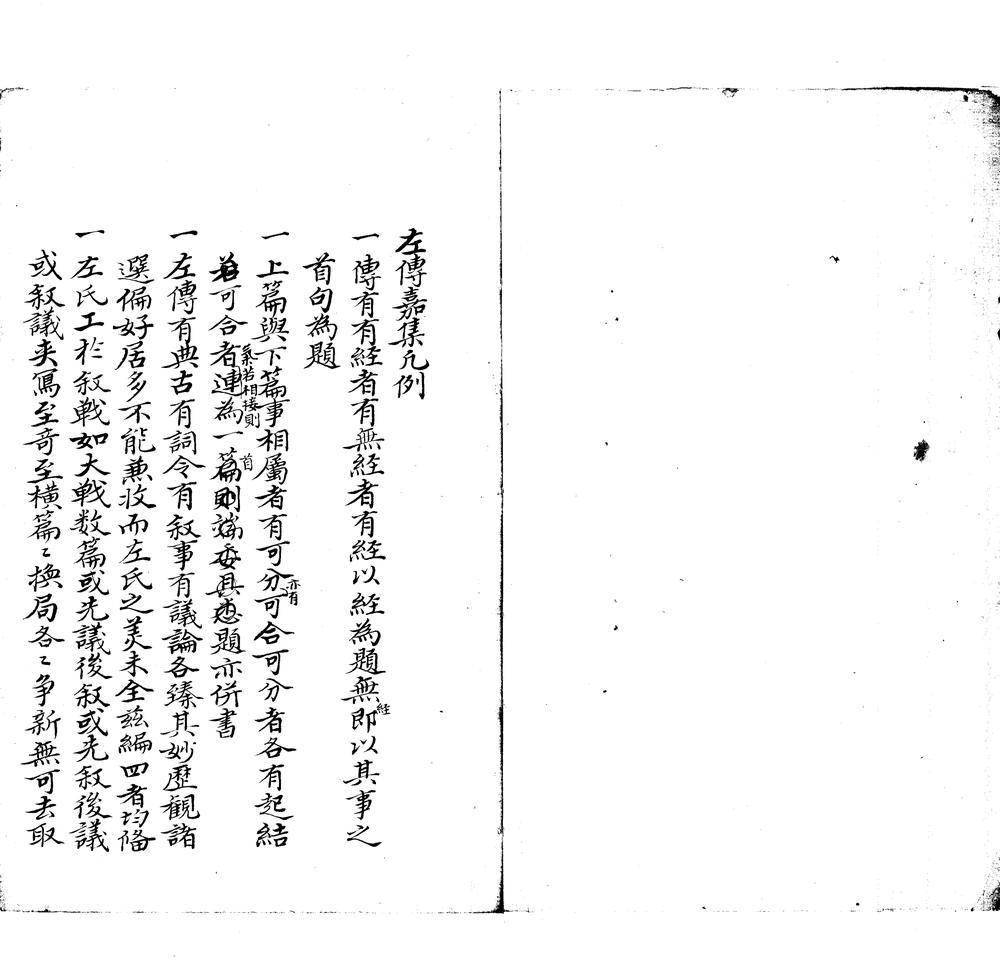 左傳嘉集凡例
一傳有有経者有無経者有経以経為題無経即以其事之
首句為題
一上篇與下篇事相属者有可分亦有可合可分者各有起結
若可合者氣若相接則連為一篇首則端委具悉題亦併書
一左傳有典古有詞令有叙事有議論各臻其妙歷観諸
選偏好居多不能兼收而左氏之美未全茲編四者均俻
一左氏工於叙戦如大戦数篇或先議後叙或先叙後議
或叙議夹寫至奇至橫篇〻換局各〻争新無可去取